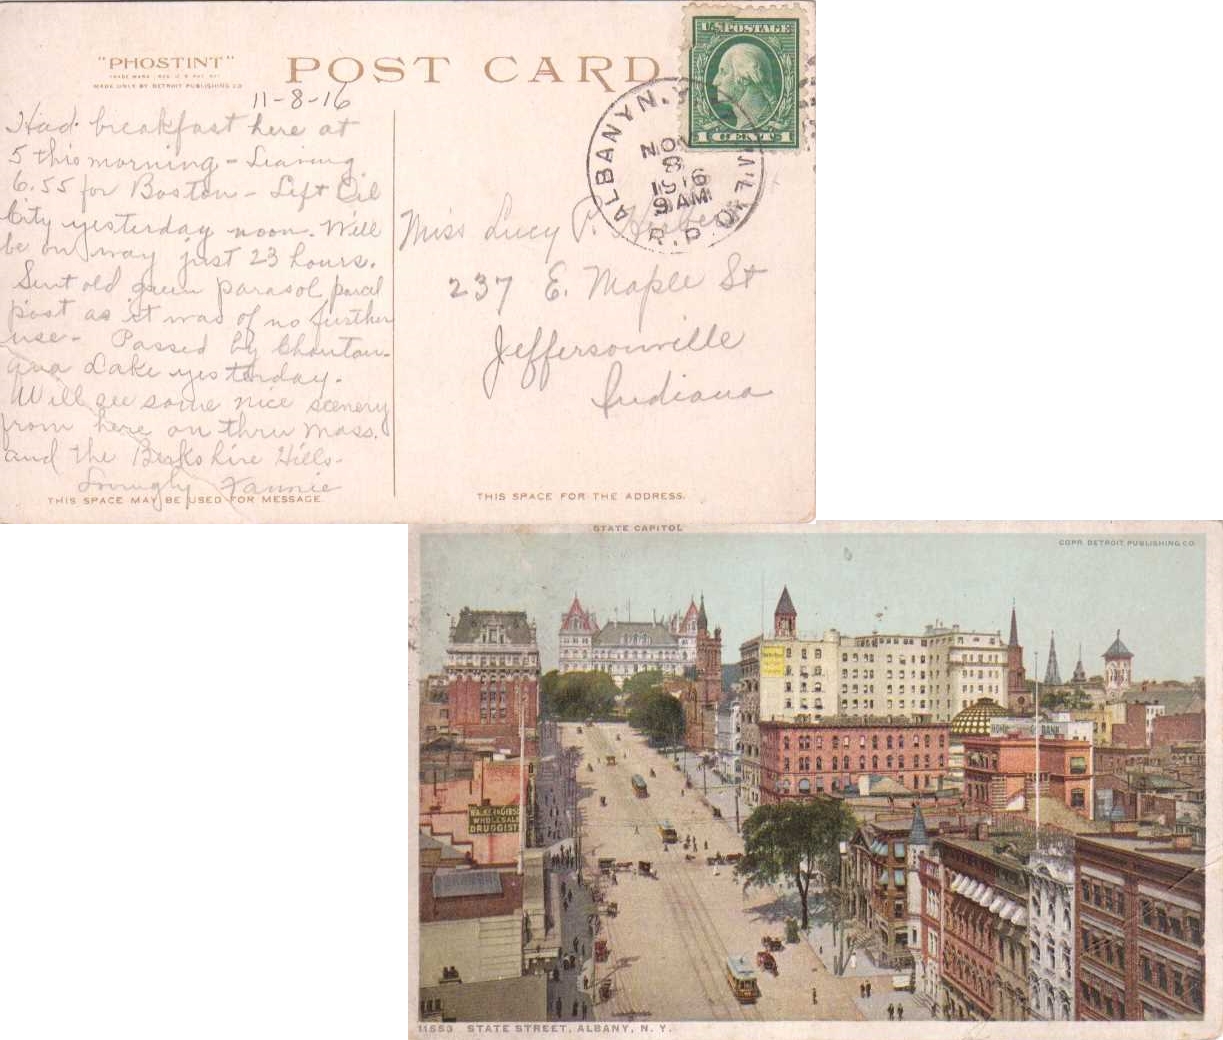 "PHOSTINT"
TRADE MARK
MADE ONLY BY DETROIT PUBLISHING CO
POST CARD
U.S. POSTAGE
1 CENT 1
ALBANY N.
NOV
8
1916
9 AM
R.P.O.
11-8-16
Had breakfast here at
5 this morning - Leaving
6.55 for Boston - Left Oil
City yesterday noon. Will
be on way just 23 hours.
Sent old green parasol parcel
post as it was of no further
use - Passed by Chautau-
qua Lake yesterday.
Will see some nice scenery
from here on thru Mass.
and the Berkshire Hills -
Lovingly Fannie
THIS SPACE MAY BE USED FOR MESSAGE.
Miss Lucy P.
237 E. Maple St
Jeffersonville
Indiana
THIS SPACE FOR THE ADDRESS.
STATE CAPITOL
COPR. DETROIT PUBLISHING CO.
HOME BANK
WALKER & GIBSON
WHOLESALE
DRUGGIST
11553 STATE STREET, ALBANY, N. Y.